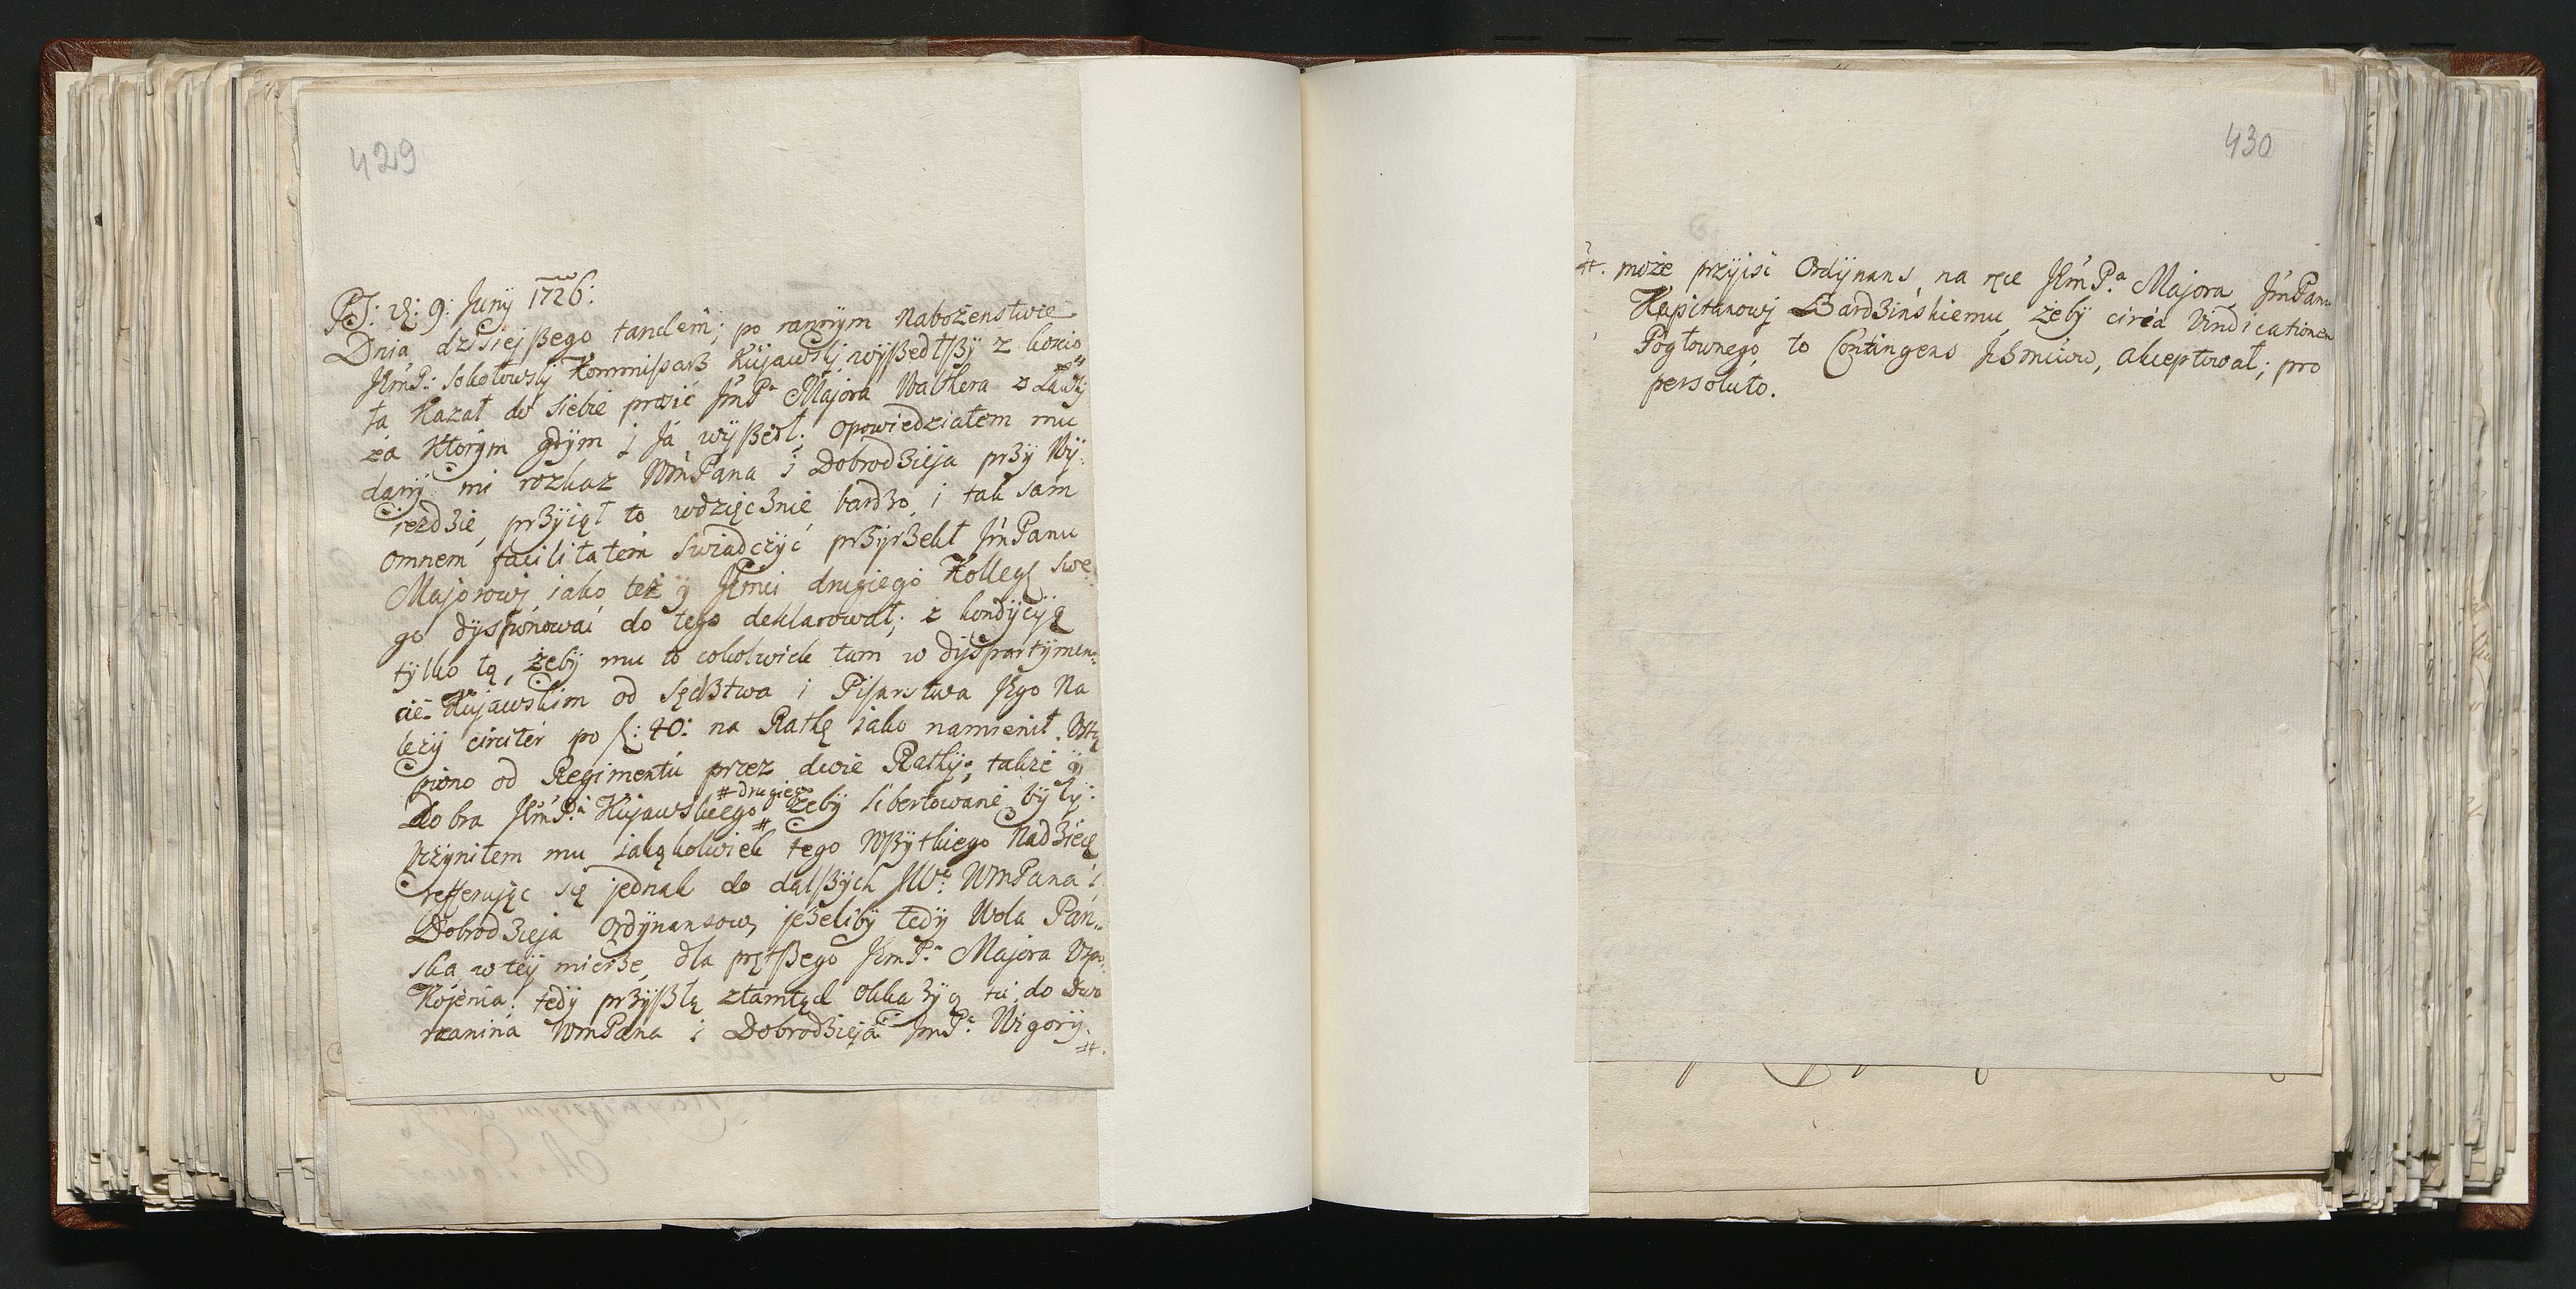 429
PS: d: 9: Juny 1726:
Dnia dzisiejßego tandem; po rannym Nabożenstwie
JEmP: Sokołowskj Kommißarz Kujawskj wyßedłßy z koscio
ła Kazał do siebie prosić JmPa Majora Walthera z Ławkj
za ktorym gdym j Ja wyßedł; opowiedziałem mu
dany mi rozkaz WmPana i Dobrodzieja przy Wy:
iezdzie, przyiął to wdzięcznie bardzo, i tak sam
omnem facilitatem swiadczyć przyrzekł JmPanu
Majorowj iako też y JEmci drugiego Kollegę swe
go dysponować do tego deklarował; z kondycyą
tylko tą, żeby mu to cokolwiek tam w dyspartymen:
cie Kujawskim od sędztwa i Pisarstwa JEgo Na
leży circiter po f: 40: na Rathę iako namienił, Ustą
piono od Regimentu przez dwie Rathy; także y
Dobra JEmPa Kujawskiego # #drugiego żeby libertowane były:
Uczyniłem mu iakąkolwiek tego Wßytkiego Nadzieię
refferując się jednak do dalßych JWo: WmPana i
Dobrodzieja Ordynansow, jeżeliby tedy Wola Pań„
ska w tey mierze, dla prętßego JEmPa Majora Uspo:
Kojenia; tedy przyßłą ztamtąd okkazyą tu do Dwo
rzanina WmPana i Dobrodzieja JmPa: Wigory.
#.
430
#. może przyisć Ordynans, na ręce JEmPa Majora, JmPanu
Kapitanowj Bardzińskiemu, żeby circa Vindicationem
Pogłownego to Contingens Ichmciow, akceptował; pro
persoluto.